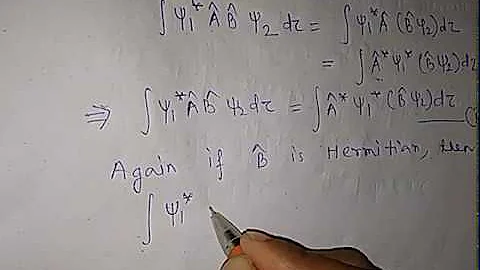 ∫ψ₁* Â B̂ ψ₂ dτ = ∫ψ₁* Â (B̂ψ₂)dτ
= ∫Â* ψ₁* (B̂ψ₂)dτ
⇒ ∫ψ₁* Â B̂ ψ₂ dτ = ∫Â* ψ₁* (B̂ψ₂)dτ
Again if B̂ is Hermitian, then
∫ψ₁*